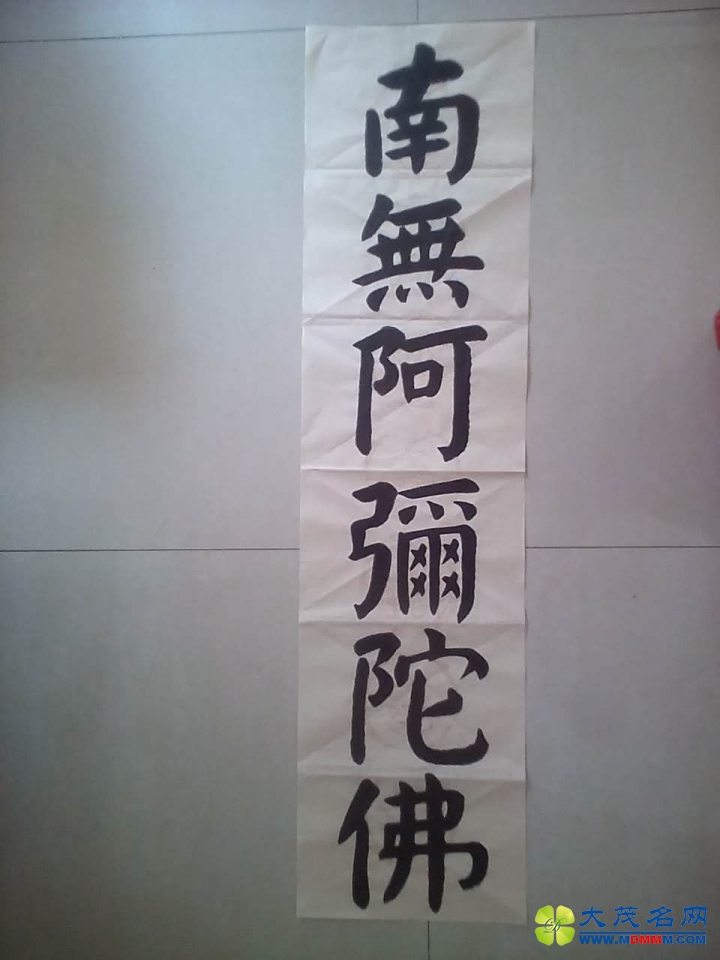 南無阿彌陀佛
大茂名网
WWW.MDMMM.COM